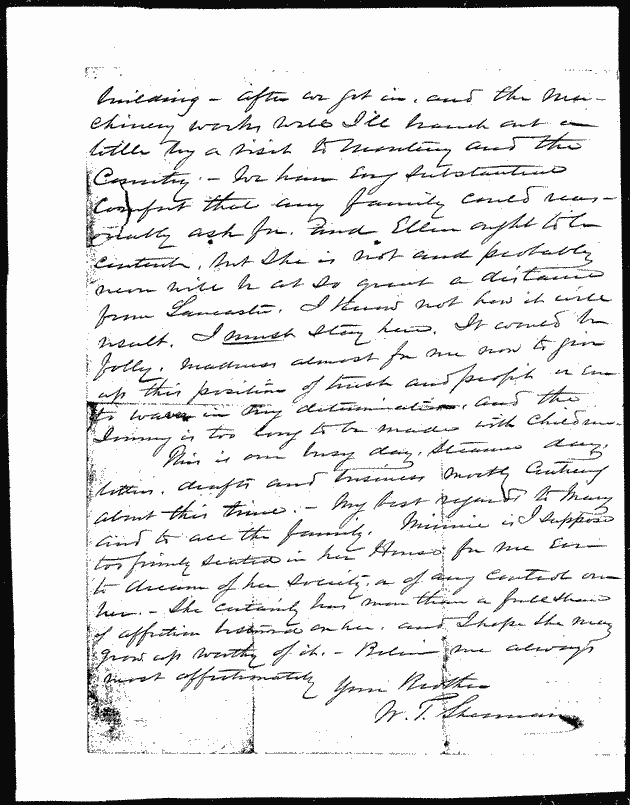 building – after we get in, and the ma-
chinery works well I'll branch out a
little by a visit to Monterey and the
Country. – We have every substantial
Comfort that any family could reas-
onably ask for. And Ellen ought to be
content, but she is not and probably
never will be at so great a distance
from Lancaster. I know not how it will
result. I must stay here. It would be
folly, madness almost for me now to give
up this position of trust and profit or even
to waver in my determination, and the
Journey is too long to be made with children.
This is our busy day, steamer day,
letters, drafts and business mostly Centering
about this time. – My best regards to Mary
and to all the family. Minnie is I suppose
too firmly seated in her House for me Even
to dream of her society, or of any control over
her. – She certainly has more than a full share
of affection bestowed on her, and I hope she may
grow up worthy of it. – Believe me always
most affectionately
Your Brother
W. T. Sherman